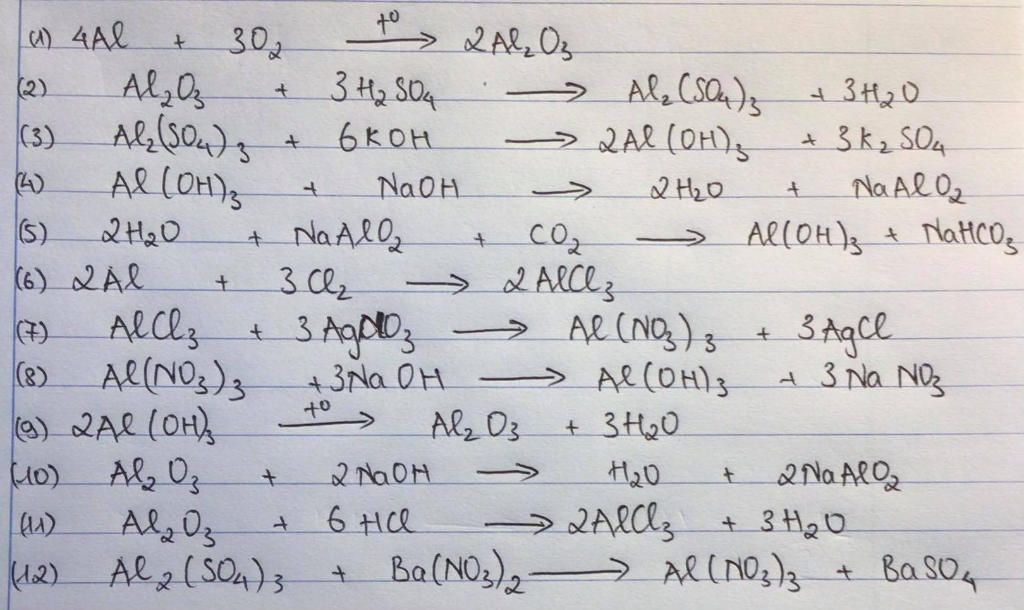 (1) 4Al + 3O₂ —t⁰→ 2Al₂O₃
(2) Al₂O₃ + 3H₂SO₄ → Al₂(SO₄)₃ + 3H₂O
(3) Al₂(SO₄)₃ + 6KOH → 2Al(OH)₃ + 3K₂SO₄
(4) Al(OH)₃ + NaOH → 2H₂O + NaAlO₂
(5) 2H₂O + NaAlO₂ + CO₂ → Al(OH)₃ + NaHCO₃
(6) 2Al + 3Cl₂ → 2AlCl₃
(7) AlCl₃ + 3AgNO₃ → Al(NO₃)₃ + 3AgCl
(8) Al(NO₃)₃ + 3NaOH → Al(OH)₃ + 3NaNO₃
(9) 2Al(OH)₃ —t⁰→ Al₂O₃ + 3H₂O
(10) Al₂O₃ + 2NaOH → H₂O + 2NaAlO₂
(11) Al₂O₃ + 6HCl → 2AlCl₃ + 3H₂O
(12) Al₂(SO₄)₃ + Ba(NO₃)₂ → Al(NO₃)₃ + BaSO₄